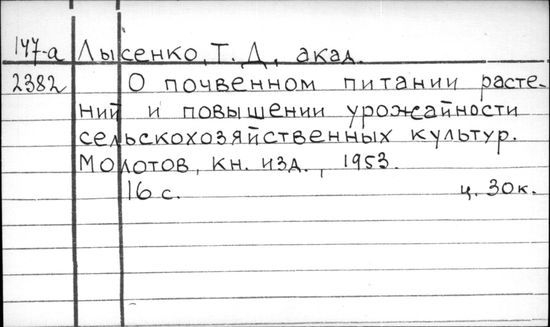 147-а Лысенко, Т. Д., акад.
2382 О почвенном питании расте-
ний и повышении урожайности
сельскохозяйственных культур.
Молотов, кн. изд., 1953.
16 с. ц. 30к.